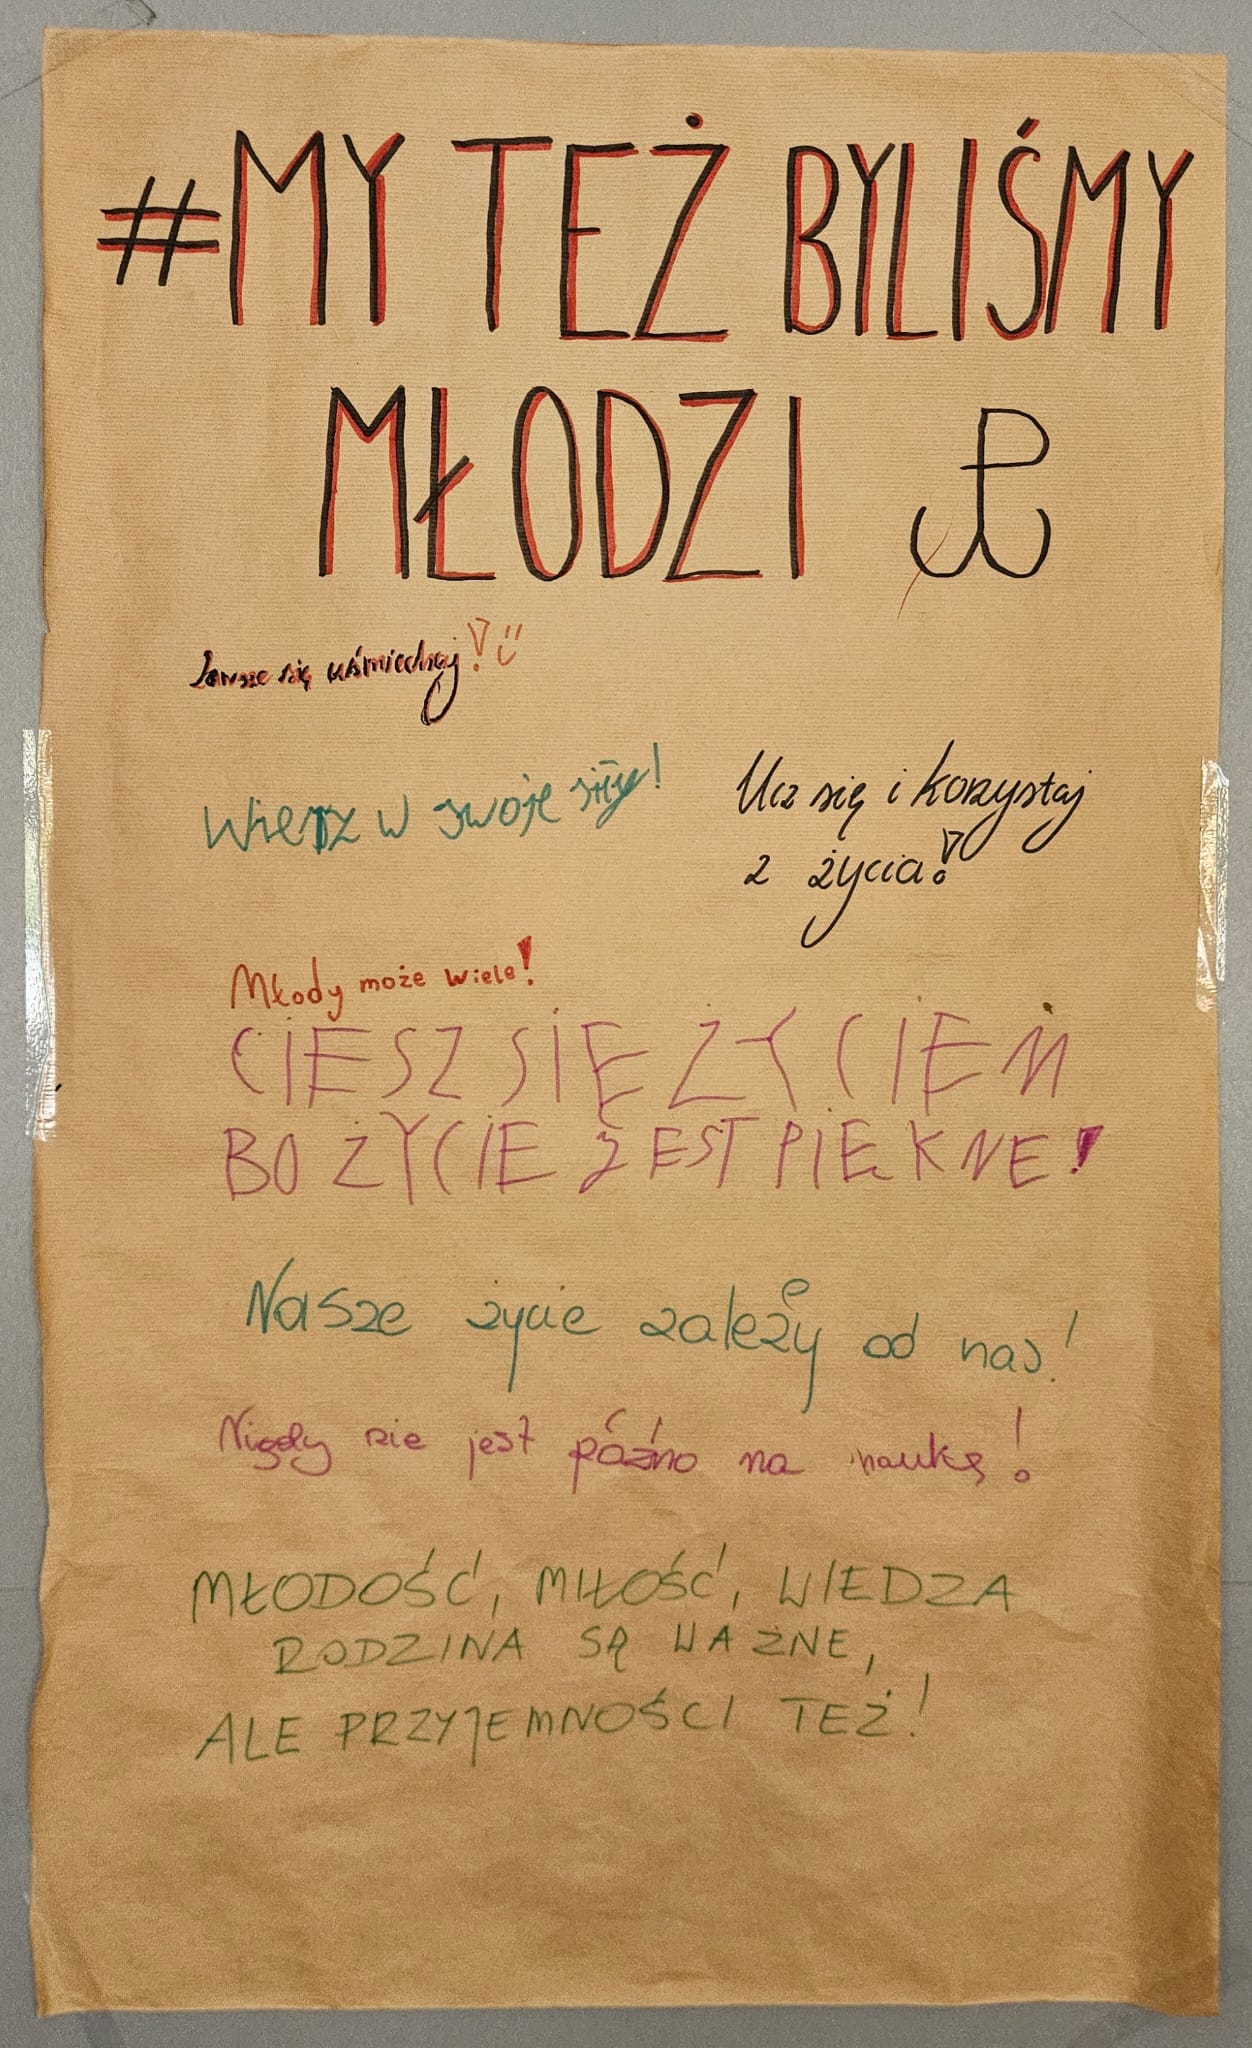 #MY TEŻ BYLIŚMY
MŁODZI
Zawsze się uśmiechaj!
Wierz w swoje siły!
Ucz się i korzystaj
z życia!
Młody może wiele!
CIESZ SIĘ ŻYCIEM
BO ŻYCIE JEST PIĘKNE!
Nasze życie zależy od nas!
Nigdy nie jest późno na naukę!
MŁODOŚĆ, MIŁOŚĆ, WIEDZA
RODZINA SĄ WAŻNE,
ALE PRZYJEMNOŚCI TEŻ!